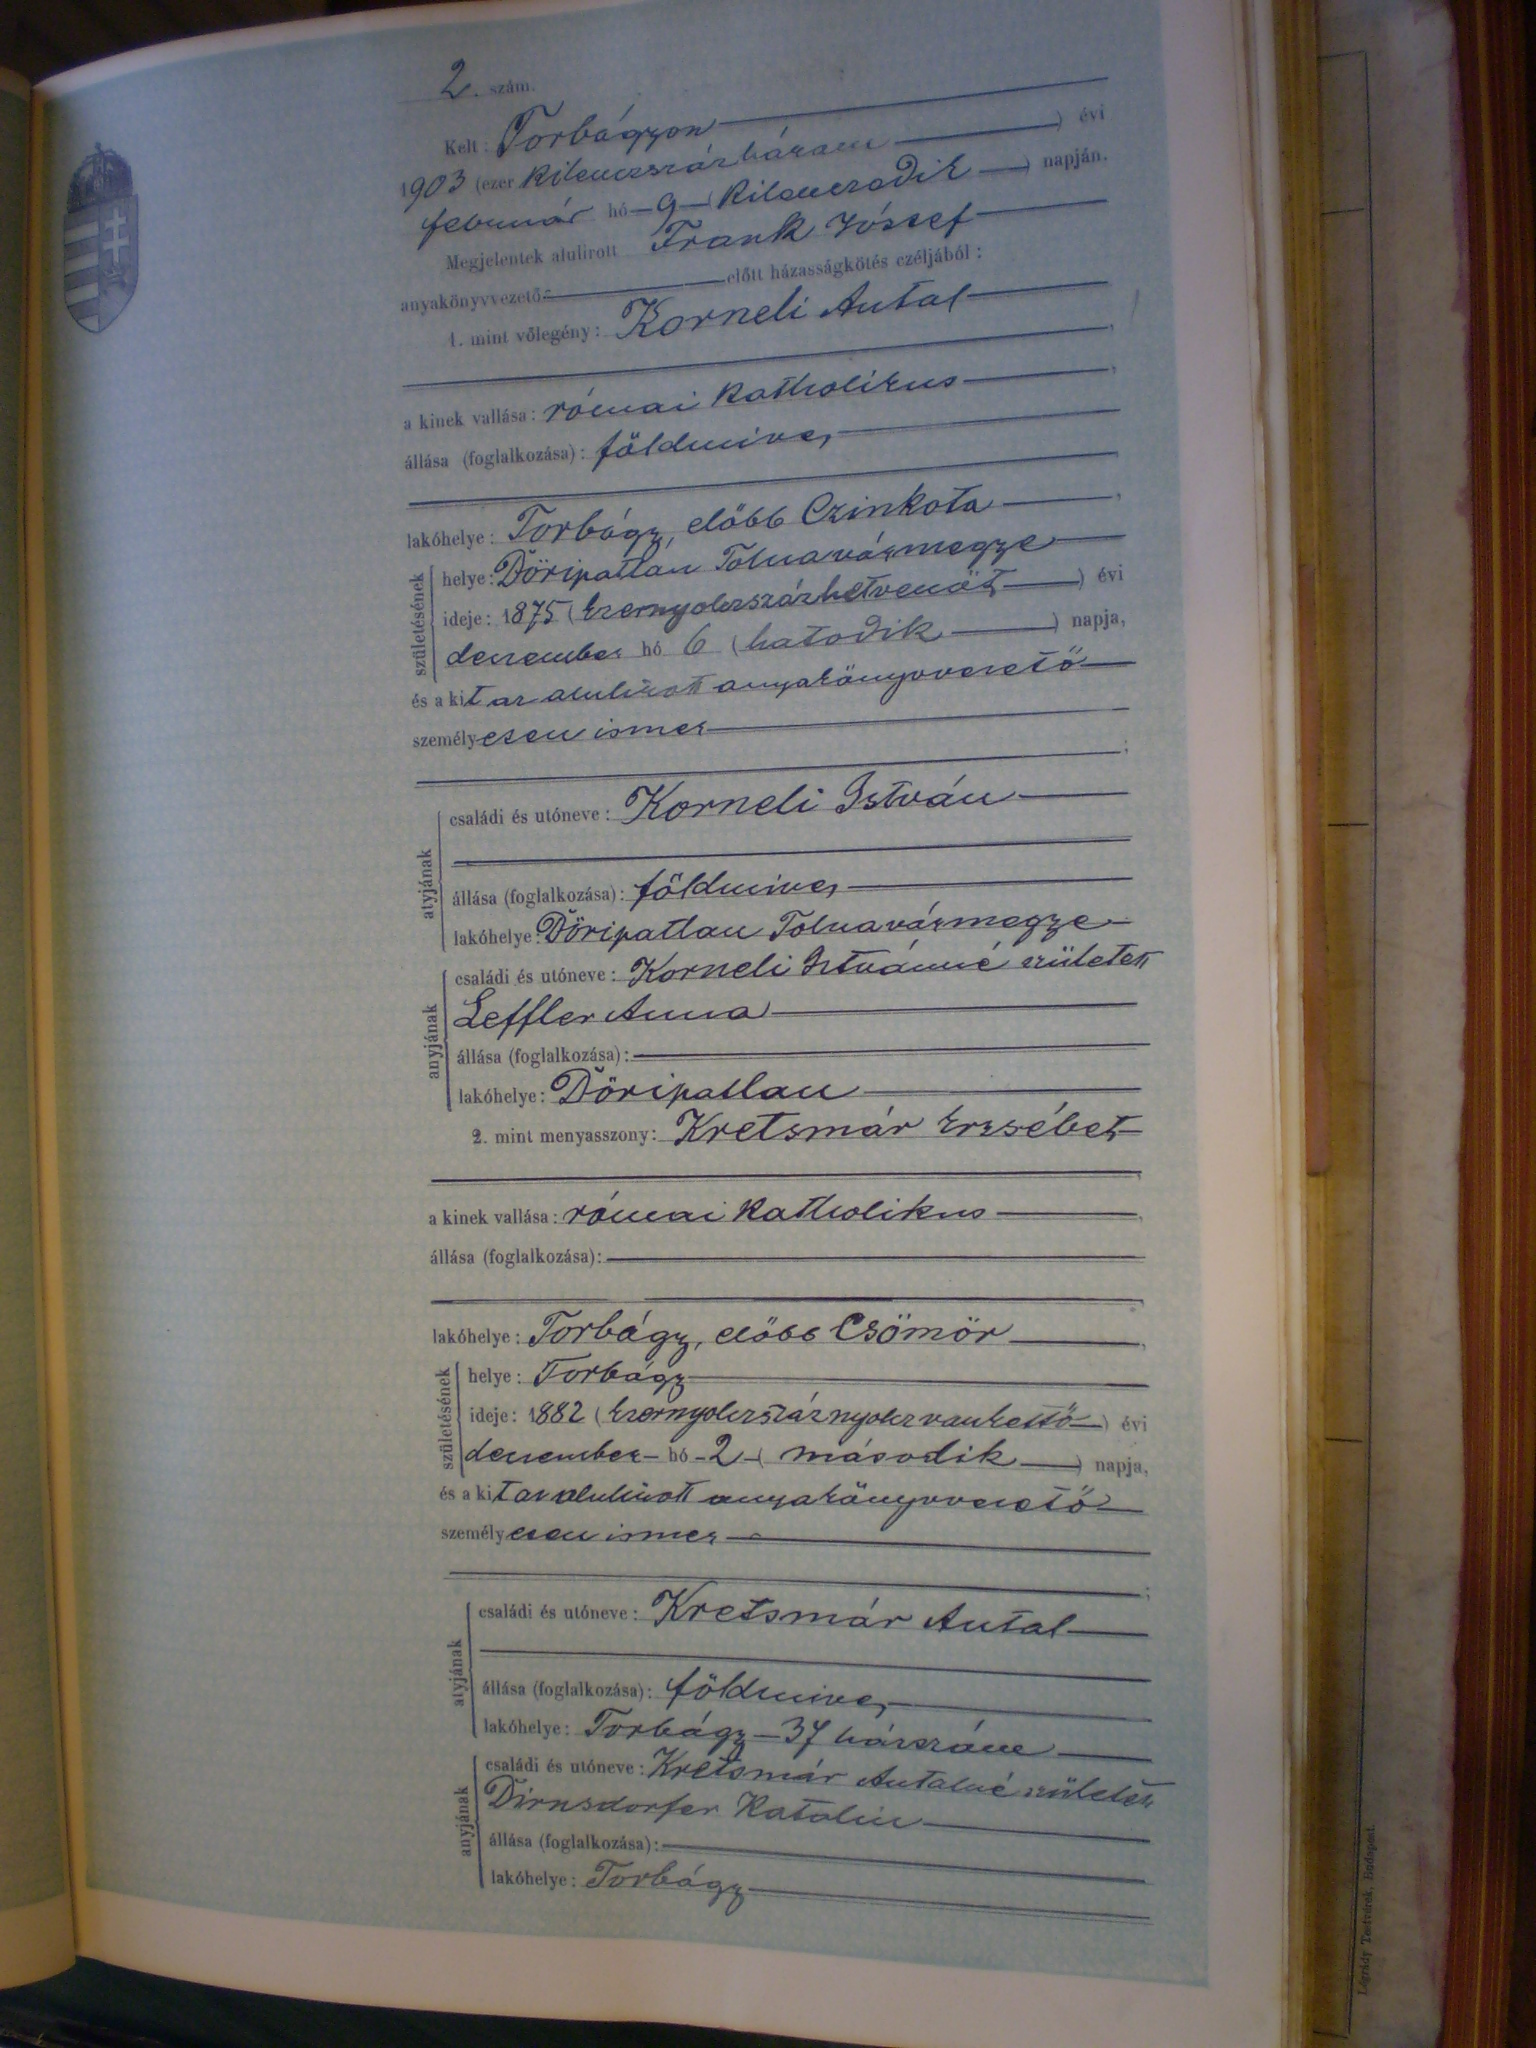 2. szám.
Kelt: Torbágyon
1903 (ezer kilenczszázhárom) évi
február hó 9 (kilenczedik) napján.
Megjelentek alulirott Frank József
anyakönyvvezető előtt házasságkötés czéljából:
1. mint vőlegény: Korneli Antal
a kinek vallása: római katholikus
állása (foglalkozása): földmives
lakóhelye: Torbágy, előbb Czinkota
születésének
helye: Döripatlan Tolnavármegye
ideje: 1875 (Ezernyolczszázhetvenöt) évi
deczember hó 6 (hatodik) napja,
és a kit az alulirott anyakönyvvezető
személyesen ismer
atyjának
családi és utóneve: Korneli István
állása (foglalkozása): földmives
lakóhelye: Döripatlan Tolnavármegye
anyjának
családi és utóneve: Korneli Istvánné született
Leffler Anna
állása (foglalkozása):
lakóhelye: Döripatlan
2. mint menyasszony: Kretsmár Erzsébet
a kinek vallása: római katholikus
állása (foglalkozása):
lakóhelye: Torbágy, előbb Csömör
születésének
helye: Torbágy
ideje: 1882 (Ezernyolczszáznyolczvankettő) évi
deczember hó 2 (második) napja,
és a kit az alulirott anyakönyvvezető
személyesen ismer
atyjának
családi és utóneve: Kretsmár Antal
állása (foglalkozása): földmives
lakóhelye: Torbágy 37 házszám
anyjának
családi és utóneve: Kretsmár Antalné született
Dirnsdorfer Katalin
állása (foglalkozása):
lakóhelye: Torbágy
Légrády Testvérek, Budapest.